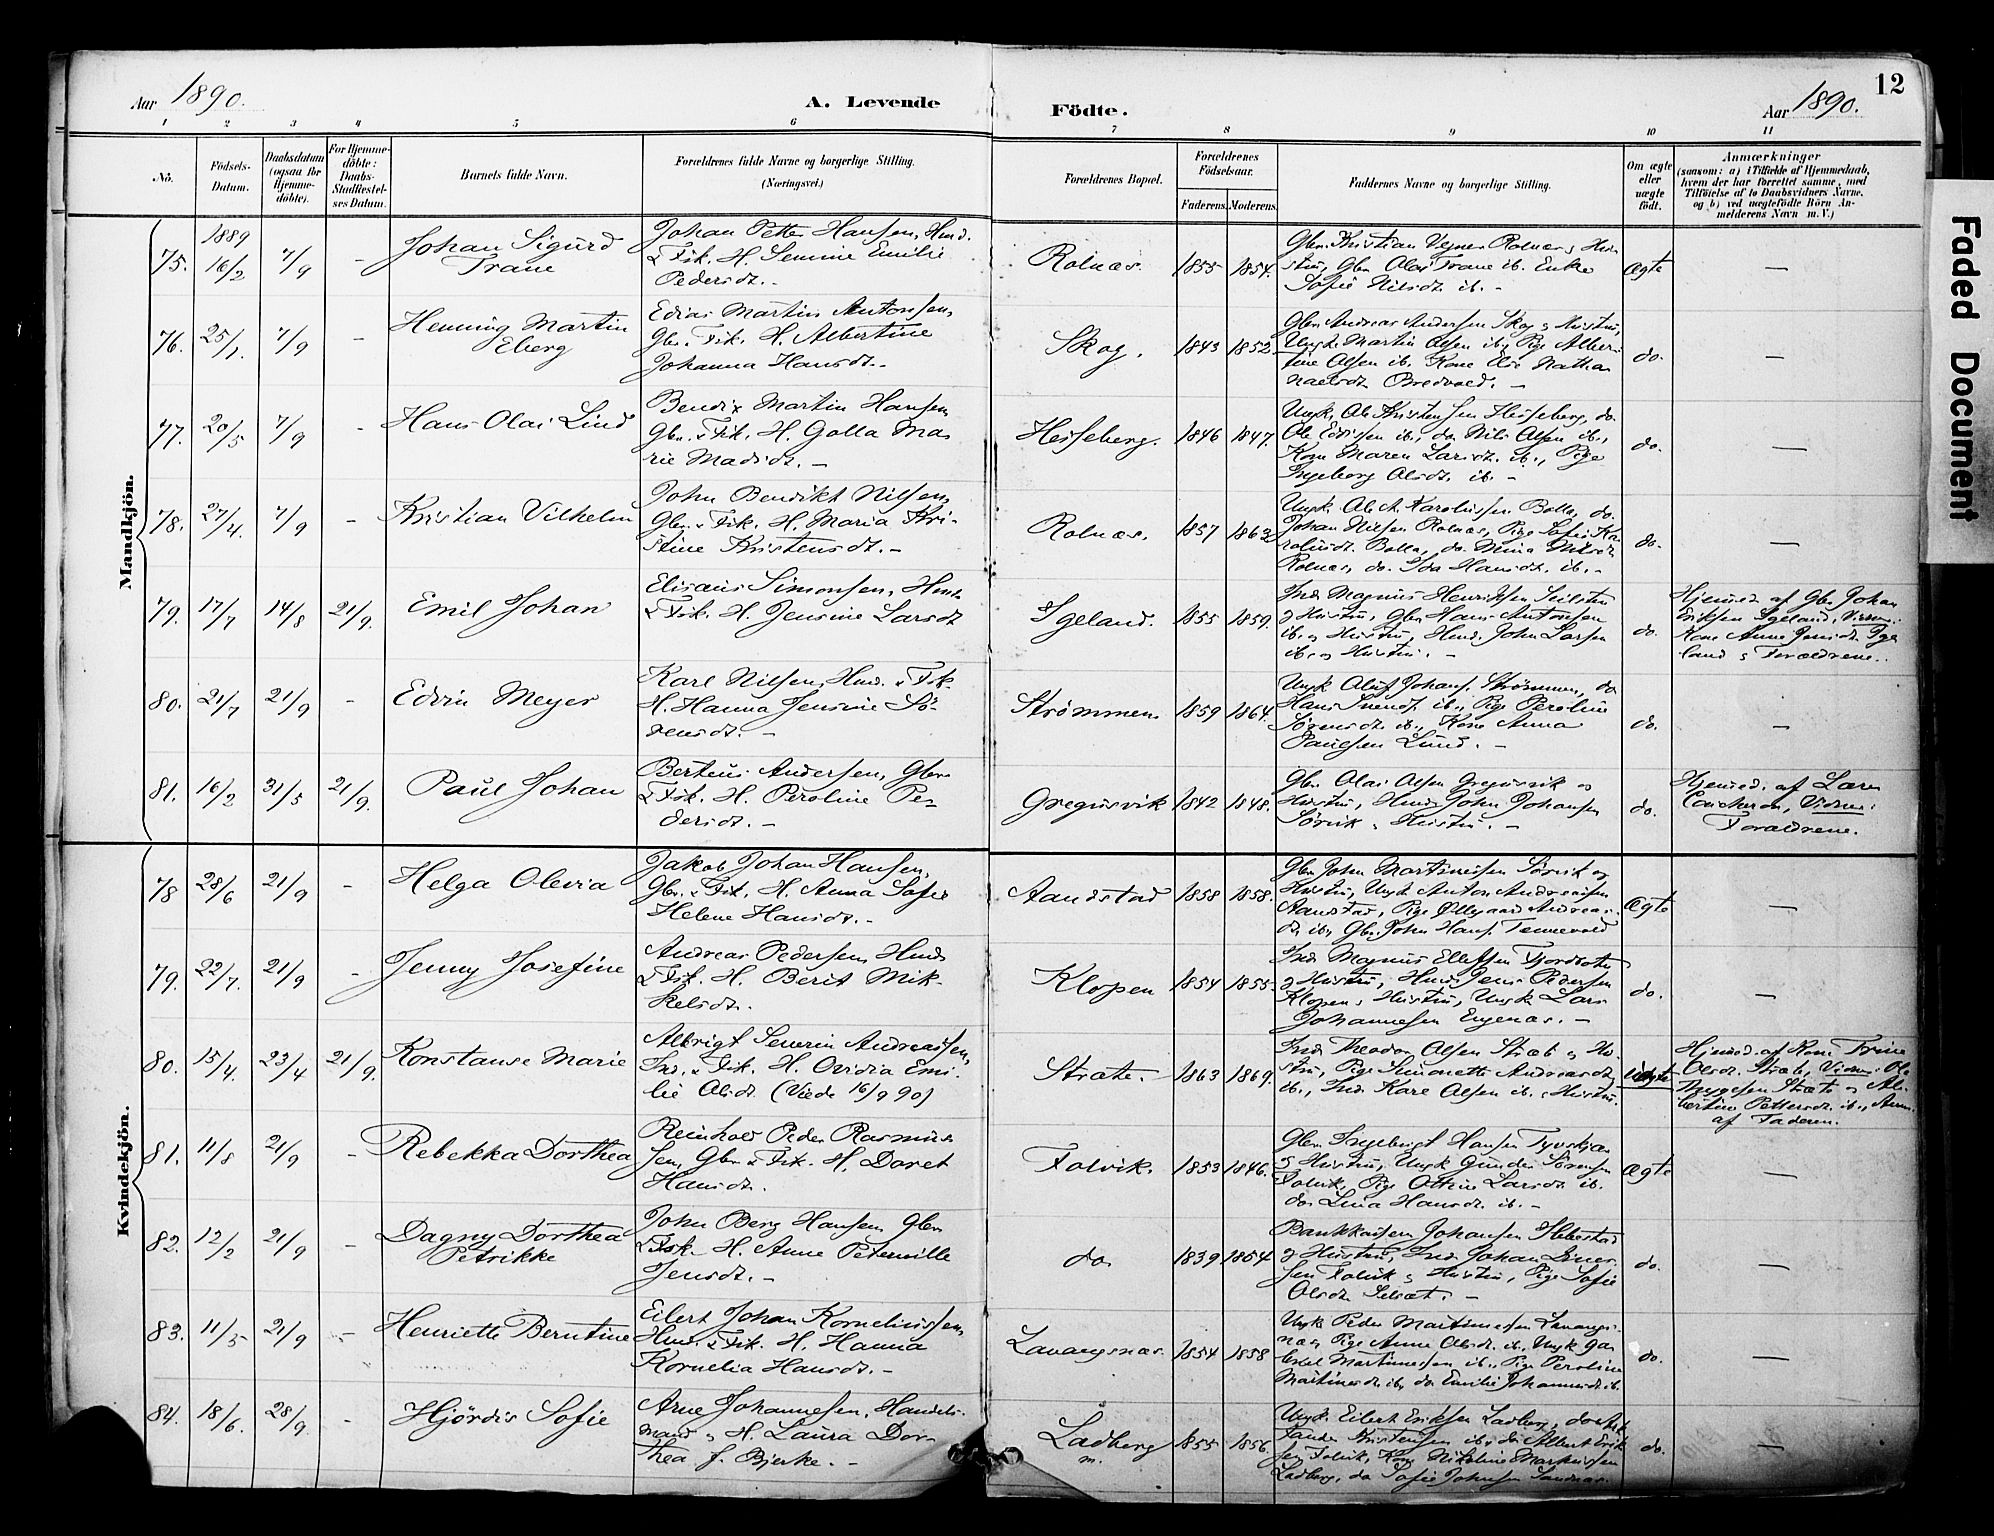 12
Aar 1890.
A. Levende
Födte.
Aar 1890.
1 2 3 4 5 6 7 8 9 10 11
No.
Födsels-
Datum.
Daabsdatum
(ogsaa for
Hjemme-
døbte).
For Hjemme-
döbte:
Daabs-
Stadfæstel-
ses Datum.
Barnets fulde Navn.
Forældrenes fulde Navne og borgerlige Stilling.
(Næringsvei.)
Forældrenes Bopæl.
Forældrenes
Födselsaar.
Faderens. Moderens.
Faddernes Navne og borgerlige Stilling.
Om ægte
eller
uægte
födt.
Anmærkninger
(saasom: a) i Tilfælde af Hjemmedaab,
hvem der har forrettet samme, med
Tilföielse af to Daabsvidners Navne,
og b) ved uægtefödte Börn An-
melderens Navn m. V.)
Faded Document
Mandkjön.
75. 1889 16/2 7/9 -
Johan Sigurd
Trane
Johan Petter Hansen, Hmd.
& Fisk. H. Semine Emilie
Pedersdt. -
Rolnæs. 1855 1854.
Gbr. Kristian Rolnæs & Hu-
stru, Gbr. Olai Trane ib. Enke
Sofie Nilsdt. ib. -
Ægte -
76. 25/1. 7/9 -
Henning Martin
Eberg
Edias Martin Antonsen,
Gbr. & Fisk. H. Albertine
Johanna Hansdt. -
Skog. 1843 1852.
Gbr. Andreas Andersen Skog & Hustru,
Ungk. Martin Olsen ib., Pige Alber-
tine Olsen ib. Kone Else Natha-
naelsdt. Bredvold. -
do. -
77. 20/5 7/9 -
Hans Olai Lind
Bendix Martin Hansen,
Gbr. & Fisk. H. Golla Ma-
rie Madsdt. -
Hesseberg. 1846 1847.
Ungk. Ole Kristensen Hesseberg, do.
Ole Edissen ib., do. Nils Olsen ib.,
Kone Maren Larsdt. ib., Pige
Ingeborg Olsdt. ib. -
do. -
78. 27/4. 7/9 -
Kristian Vilhelm
John Benedikt Nilsen,
Gbr. & Fisk. H. Maria Kri-
stine Kristensdt. -
Rolnæs. 1857 1862
Ungk. Ole A. Karolussen Bolla, do.
Johan Nilsen Rolnæs, Pige Sofie Ka-
rolusdt. Bolla, do. Mina Nilsdt.
Rolnæs, do. Ida Hansdt. ib. -
do. -
79. 17/7 14/8 21/9.
Emil Johan
Elisæus Simonsen, Hmd.
& Fisk. H. Jensine Larsdt
Igeland. 1855 1859.
Ind. Magnus Henriksen
& Hustru, Gbr. Hans Antonsen
ib. & Hustru, Hmd. John Larsen
ib. & Hustru. -
do.
Hjemed. af Gbr. Johan
Eriksen Igeland, Vidner:
Kone Anne Jensdt. Ige-
land & Forældrene.
80. 21/7 21/9 -
Edvin Meyer
Karl Nilsen, Hmd. & Fisk.
H. Hanna Jensine Sö-
rensdt. -
Strømmen 1859 1864.
Ungk. Oluf Johans. Strømmen, do
Hans ib., Pige Peroline
Sörensdt. ib., Kone Anna
Paulsen Lund. -
do. -
81. 16/2 31/5 21/9.
Paul Johan
Berteus Andersen, Gbr.
& Fisk. H. Peroline Pe-
dersdt. -
Gregusvik 1842 1848.
Gbr. Olai Olsen Gregusvik og
Hustru, Hmd. John Johansen
Sørvik & Hustru. -
do.
Hjemed. af Lærer
Vidner:
Forældrene.
Kvindekjön.
78 28/6 21/9 -
Helga Olevia
Jakob Johan Hansen,
Gbr. & Fisk. H. Anna Sofie
Helene Hansdt. -
Aandstad 1858 1858.
Gbr. John Martinussen Sörvik og
Hustru, Ungk. Anton Andreassen
Aandstad, Pige Ollegaard Andreas-
dt. ib., Gbr. John Hans. Tennevold
Ægte -
79. 22/7. 21/9 -
Jenny Josefine
Andreas Pedersen, Hmd.
& Fisk. H. Berit Mik-
kelsdt.
Kloppen 1854 1855.
Ind. Magnus Ellefsen Fjordbotn
& Hustru, Hmd. Jens Pedersen
Kloppen & Hustru, Ungk. Lars
Johannesen Engenæs. -
do. -
80. 15/4. 23/4 21/9.
Konstanse Marie
Albrigt Severin Andreassen,
Ind. & Fisk. H. Ovidia Emi-
lie Olsdt. (Viede 16/9 90)
Stræte. 1863 1869.
Ind. Theodor Olsen Stræte og Hu-
stru, Pige Simonette Andreasdt
ib., Ind. Kare Olsen ib. & Hustru.
Uægte
Hjemed. af Kone Trine
Olsdt. Stræte, Vidner: Ole
Stræte & Al-
bertine Pettersdt. ib., Anm.
af Faderen.
81. 11/8 21/9 -
Rebekka Dorthea
Reinhold Peder Rasmus-
sen, Gbr. & Fisk. H. Doret
Hansdt.
Folvik. 1853 1846.
Gbr. Ingebrigt Hansen
& Hustru, Ungk. Gunder Sörensen
Folvik, Pige Ottine Larsdt. ib.
do. Lina Hansdt. ib. -
Ægte -
82. 12/2 21/9 -
Dagny Dorthea
Petrikke
John Berg Hansen, Gbr.
& Fisk. H. Anne Peternille
Jensdt. -
do. 1839 1854
Bankkasserer Johansen Ibbestad
& Hustru, Ind. Johan Einer-
sen Folvik & Hustru, Pige Sofie
Olsdt. Selsæt. -
do. -
83. 11/5 21/9 -
Henriette Berntine
Eilert Johan Korneliussen,
Hmd. & Fisk. H. Hanna
Kornelia Hansdt. -
Lavangsnæs. 1854 1858
Ungk. Peder Martinusen Lavangs-
næs, Pige Anna Olsdt. ib., Ungk. Ga-
briel Martinussen ib., Pige Peroline
Martinusdt. ib., do. Emilie Johannesdt. ib.
do. -
84. 18/6. 28/9 -
Hjördis Sofie
Arne Johannesen, Handels-
mand & H. Laura Dor-
thea f. Bjerke. -
Ladberg
m.
1855 1856.
Ungk. Eilert Eriksen Ladberg,
Kristensen ib., do. Albert Erik-
sen Folvik, Kone Nikoline Markussen
Ladberg, do. Sofie Johnsen Sandnæs.
do. -